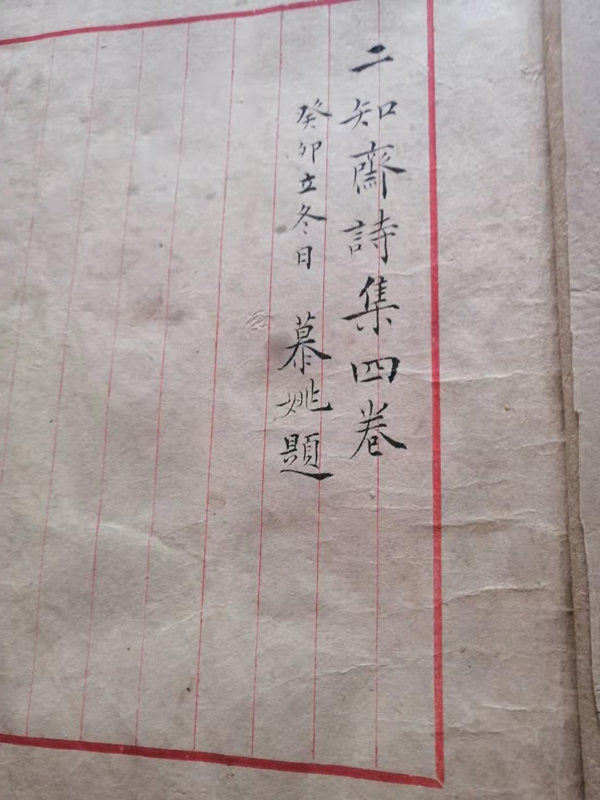 二知齋詩集四卷
癸卯立冬日 慕姚題